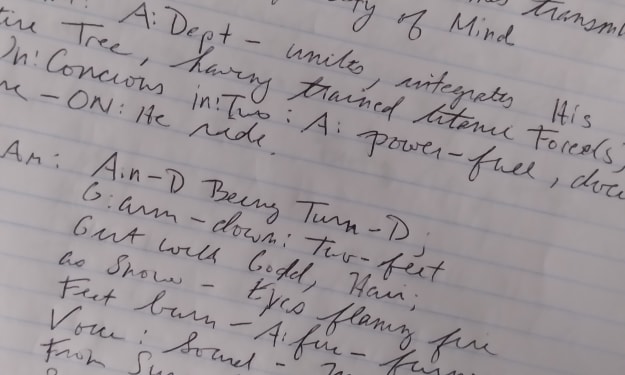 transm
of Mind
A: Dept - unites, integrates His
Tree, having trained titanic Forces,
Un: Concious in: Two: A: power-full,
- ON: He rode.
An: A:n-D Being Turn-D;
G:arm - down: Two-feet
Girt with Godd, Hair;
as Snow - Eyes flaming fire
Feet burn - A: fire -
Voice: Sound -
From